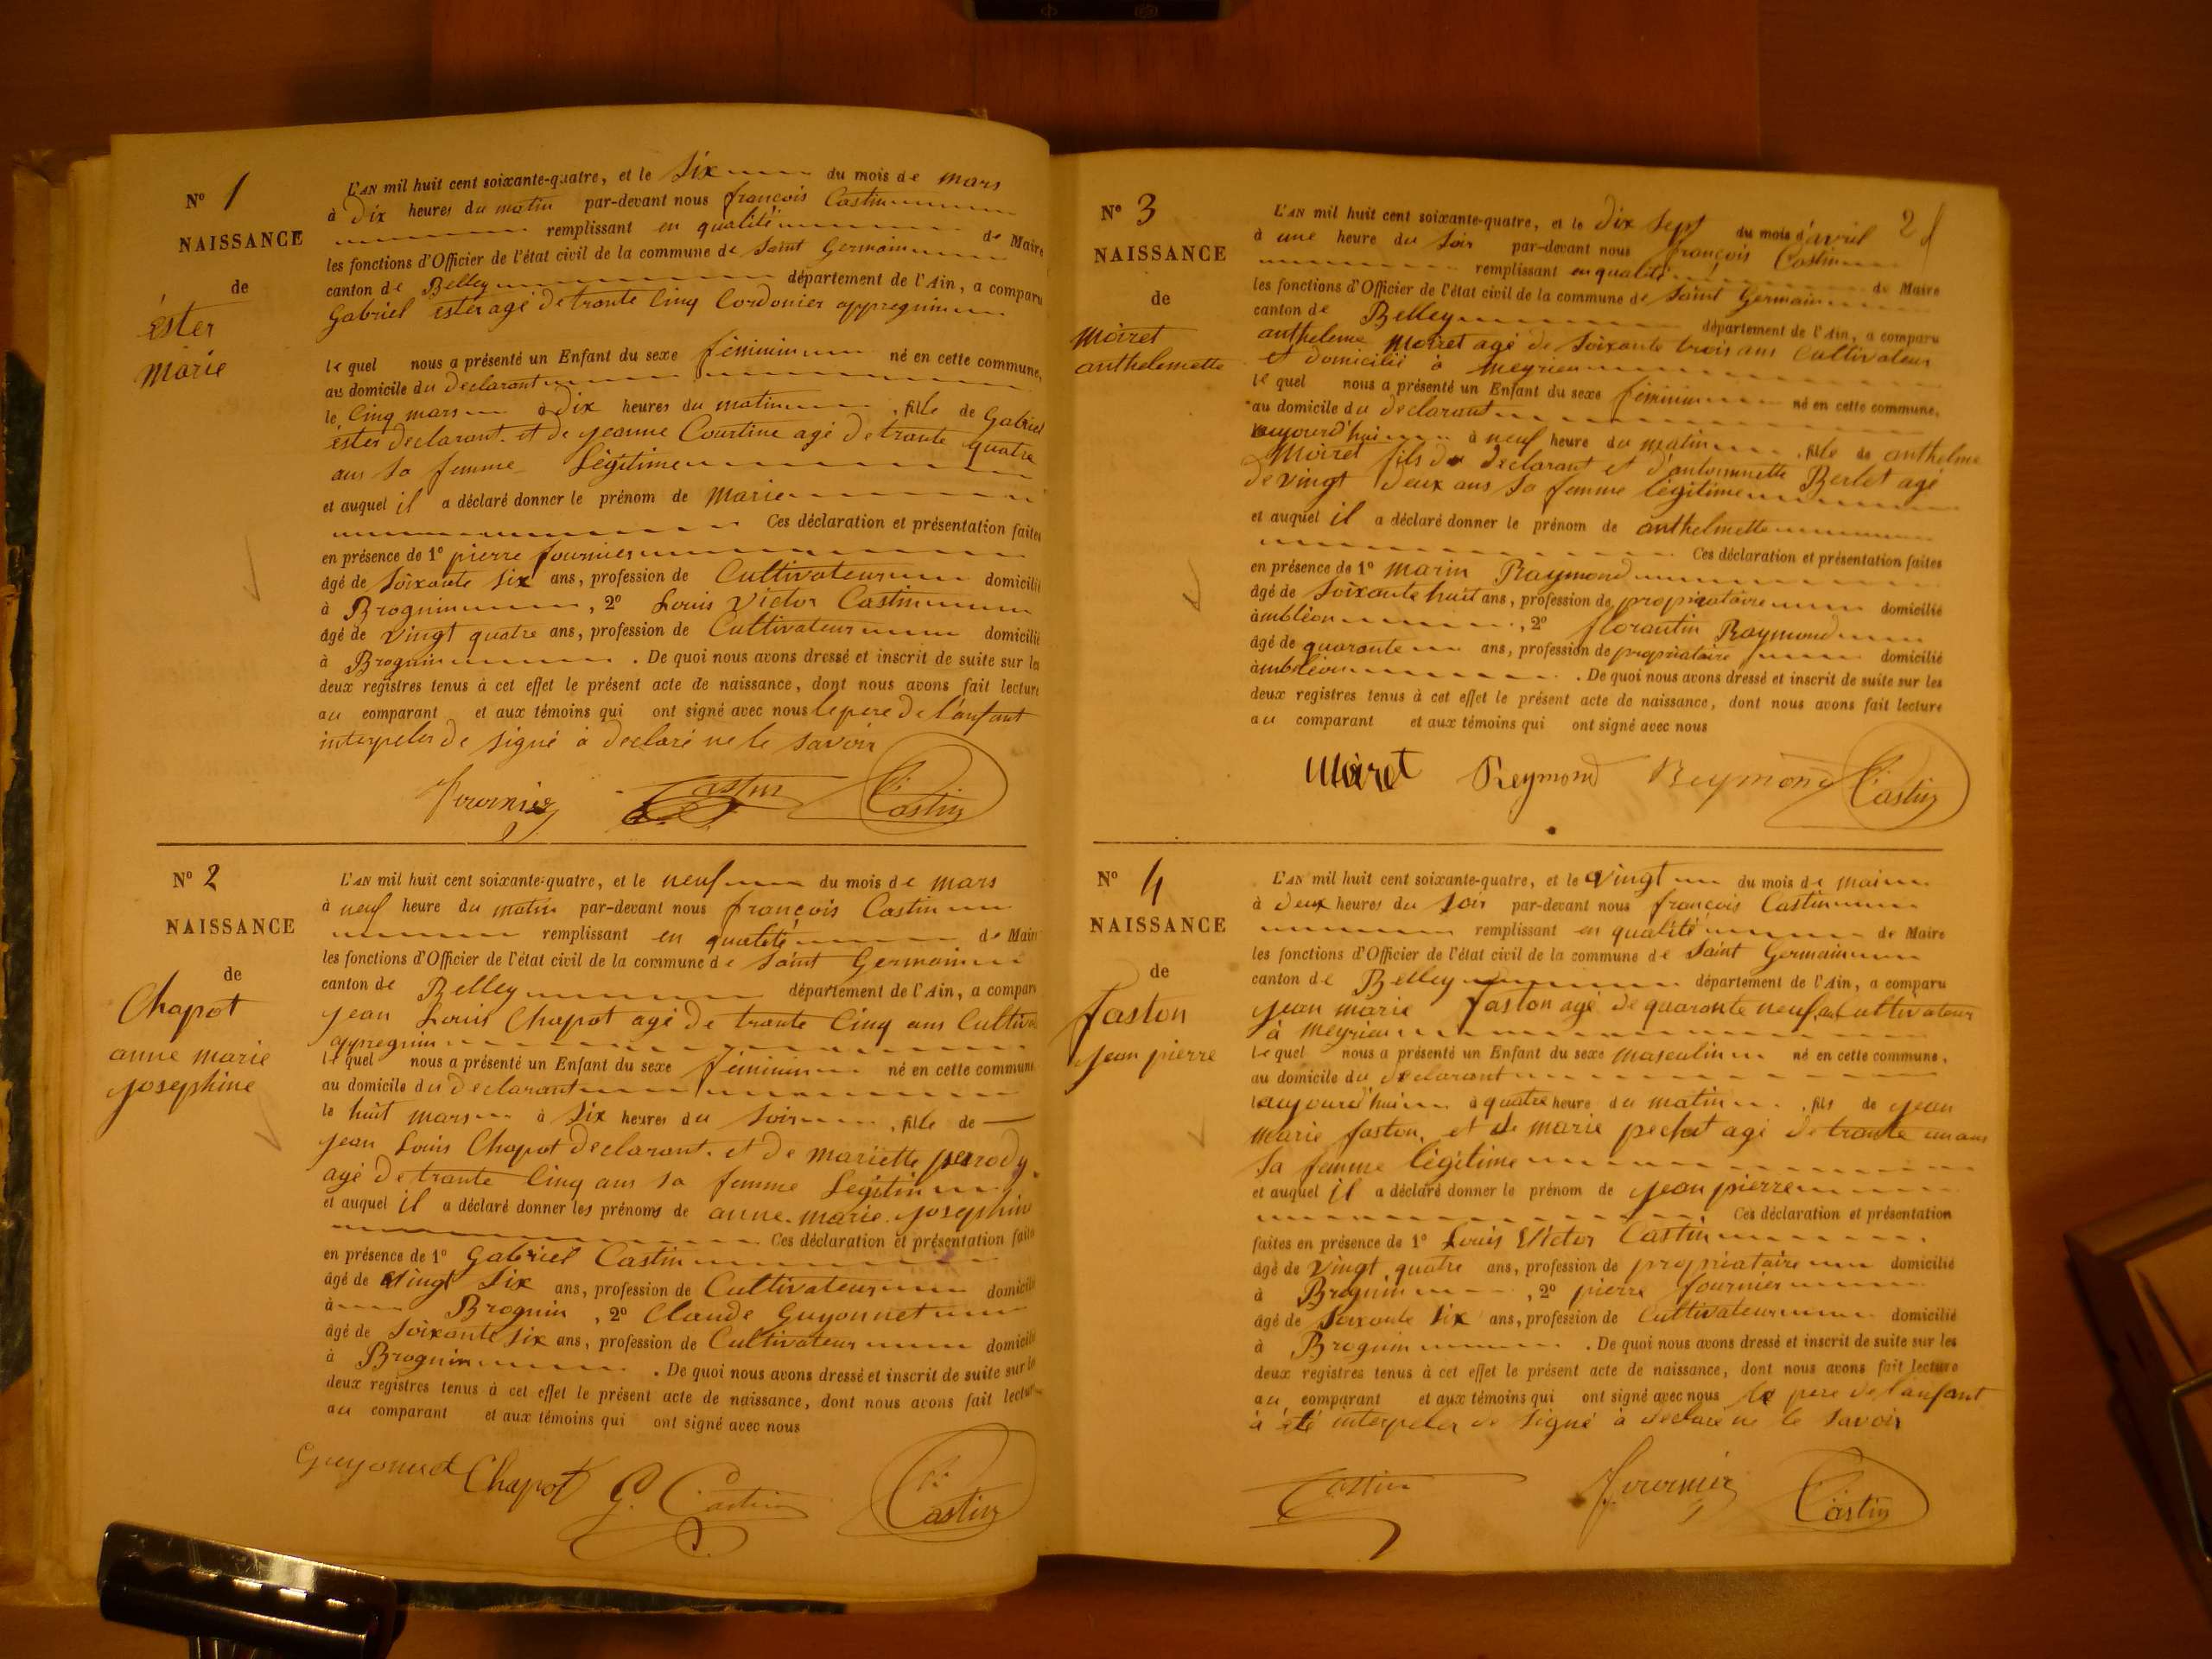 Nº 1
NAISSANCE
de
ester
marie
L'AN mil huit cent soixante-quatre, et le Six du mois de mars
à Dix heures du matin par-devant nous françois Castin
remplissant en qualité de Maire
les fonctions d'Officier de l'état civil de la commune de Saint Germain
canton de Belley département de l'Ain, a comparu
Gabriel ester agé de trante Cinq Cordonier appregnin
le quel nous a présenté un Enfant du sexe féminin né en cette commune,
au domicile du declarant
le Cinq mars à Dix heures du matin , fille de Gabriel
ester declarant. et de jeanne Courtine agé de trante quatre
ans sa femme Légitime
et auquel il a déclaré donner le prénom de Marie
Ces déclaration et présentation faites
en présence de 1º pierre fournier
âgé de Soixante six ans, profession de Cultivateur domicilié
à Brognin , 2º Louis Victor Castin
âgé de vingt quatre ans, profession de Cultivateur domicilié
à Brognin . De quoi nous avons dressé et inscrit de suite sur les
deux registres tenus à cet effet le présent acte de naissance, dont nous avons fait lecture
au comparant et aux témoins qui ont signé avec nous le pere de l'anfant
interpeler de signé à declaré ne le savoir
fournier Castin Castin
Nº 2
NAISSANCE
de
Chapot
anne marie
josephine
L'AN mil huit cent soixante-quatre, et le neuf du mois de mars
à neuf heure du matin par-devant nous françois Castin
remplissant en qualité de Maire
les fonctions d'Officier de l'état civil de la commune de Saint Germain
canton de Belley département de l'Ain, a comparu
jean Louis Chapot agé de trante Cinq ans Cultiva
appregnin
le quel nous a présenté un Enfant du sexe féminin né en cette commune
au domicile du declarant
le huit mars à Six heures du Soir , fille de
jean Louis Chapot declarant. et de mariette perrody
agé de trante Cinq ans sa femme Légitim
et auquel il a déclaré donner les prénoms de anne. marie. josephine
Ces déclaration et présentation faites
en présence de 1º Gabriel Castin
âgé de vingt Six ans, profession de Cultivateur domicilié
à Brognin , 2º Claude Guyonnet
âgé de Soixante six ans, profession de Cultivateur domicilié
à Brognin . De quoi nous avons dressé et inscrit de suite sur les
deux registres tenus à cet effet le présent acte de naissance, dont nous avons fait lecture
au comparant et aux témoins qui ont signé avec nous
Guyonnet Chapot G. Castin Castin
2
Nº 3
NAISSANCE
de
Moiret
anthelmette
L'AN mil huit cent soixante-quatre, et le Dix Sept du mois d'avril
à une heure du Soir par-devant nous françois Castin
remplissant en qualité de Maire
les fonctions d'Officier de l'état civil de la commune de Saint Germain
canton de Belley département de l'Ain, a comparu
antheleme Moiret agé de Soixante trois ans Cultivateur
et domicilié à meyrieu
le quel nous a présenté un Enfant du sexe féminin né en cette commune,
au domicile du declarant
aujourd'hui à neuf heure du matin , fille de anthelme
Moiret fils du declarant et d'antoinnette Berlet agé
de vingt deux ans sa femme légitime
et auquel il a déclaré donner le prénom de anthelmette
Ces déclaration et présentation faites
en présence de 1º marin Raymond
âgé de Soixante huit ans, profession de propriataire domicilié
à ambléon , 2º florantin Raymond
âgé de quarante ans, profession de propriataire domicilié
à ambléon . De quoi nous avons dressé et inscrit de suite sur les
deux registres tenus à cet effet le présent acte de naissance, dont nous avons fait lecture
au comparant et aux témoins qui ont signé avec nous
Moiret Reymond Reymond Castin
Nº 4
NAISSANCE
de
faston
jean pierre
L'AN mil huit cent soixante-quatre, et le vingt du mois de mai
à deux heures du Soir par-devant nous françois Castin
remplissant en qualité de Maire
les fonctions d'Officier de l'état civil de la commune de Saint Germain
canton de Belley département de l'Ain, a comparu
jean marie faston agé de quarante neuf ans Cultivateur
à meyrieu
le quel nous a présenté un Enfant du sexe masculin né en cette commune,
au domicile du declarant
aujourd'hui à quatre heure du matin , fils de jean
marie faston, et de marie pechet agé de trante un ans
sa femme légitime
et auquel il a déclaré donner le prénom de jean pierre
Ces déclaration et présentation
faites en présence de 1º Louis Victor Castin
âgé de vingt quatre ans, profession de propriataire domicilié
à Brognin , 2º pierre fournier
âgé de Soixante Six ans, profession de Cultivateur domicilié
à Brognin . De quoi nous avons dressé et inscrit de suite sur les
deux registres tenus à cet effet le présent acte de naissance, dont nous avons fait lecture
au comparant et aux témoins qui ont signé avec nous le pere de l'anfant
à été interpeler de signé à declaré ne le savoir
Castin fournier Castin